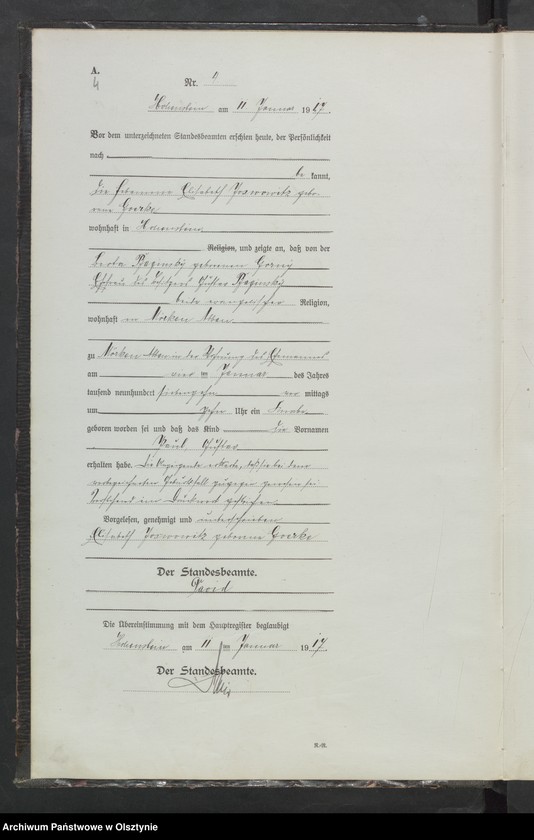 A.
4
Nr. 11
Hohenstein am 11 Januar 1917.
Vor dem unterzeichneten Standesbeamten erschien heute, der Persönlichkeit
nach
be kannt,
die Hebamme Elisabeth gebo
rene Goerke
wohnhaft in Hohenstein
Religion, und zeigte an, daß von der
geborenen
Ehefrau des Gustav
beide evangelischer Religion,
wohnhaft in
zu in der Wohnung des Ehemannes
am vier ten Januar des Jahres
tausend neunhundert siebenzehn vor mittags
um zehn Uhr ein Knabe
geboren worden sei und daß das Kind die Vornamen
Paul, Gustav
erhalten habe. Die Anzeigende erklärte, daß sie bei dem
vorbezeichneten Geburtsfall zugegen gewesen sei
Vorstehend ein Druckwort gestrichen
Vorgelesen, genehmigt und unterschrieben
Elisabeth geborene Goerke
Der Standesbeamte.
David
Die Übereinstimmung mit dem Hauptregister beglaubigt
Hohenstein am 11 ten Januar 1917.
Der Standesbeamte.
R.-R.
Archiwum Państwowe w Olsztynie